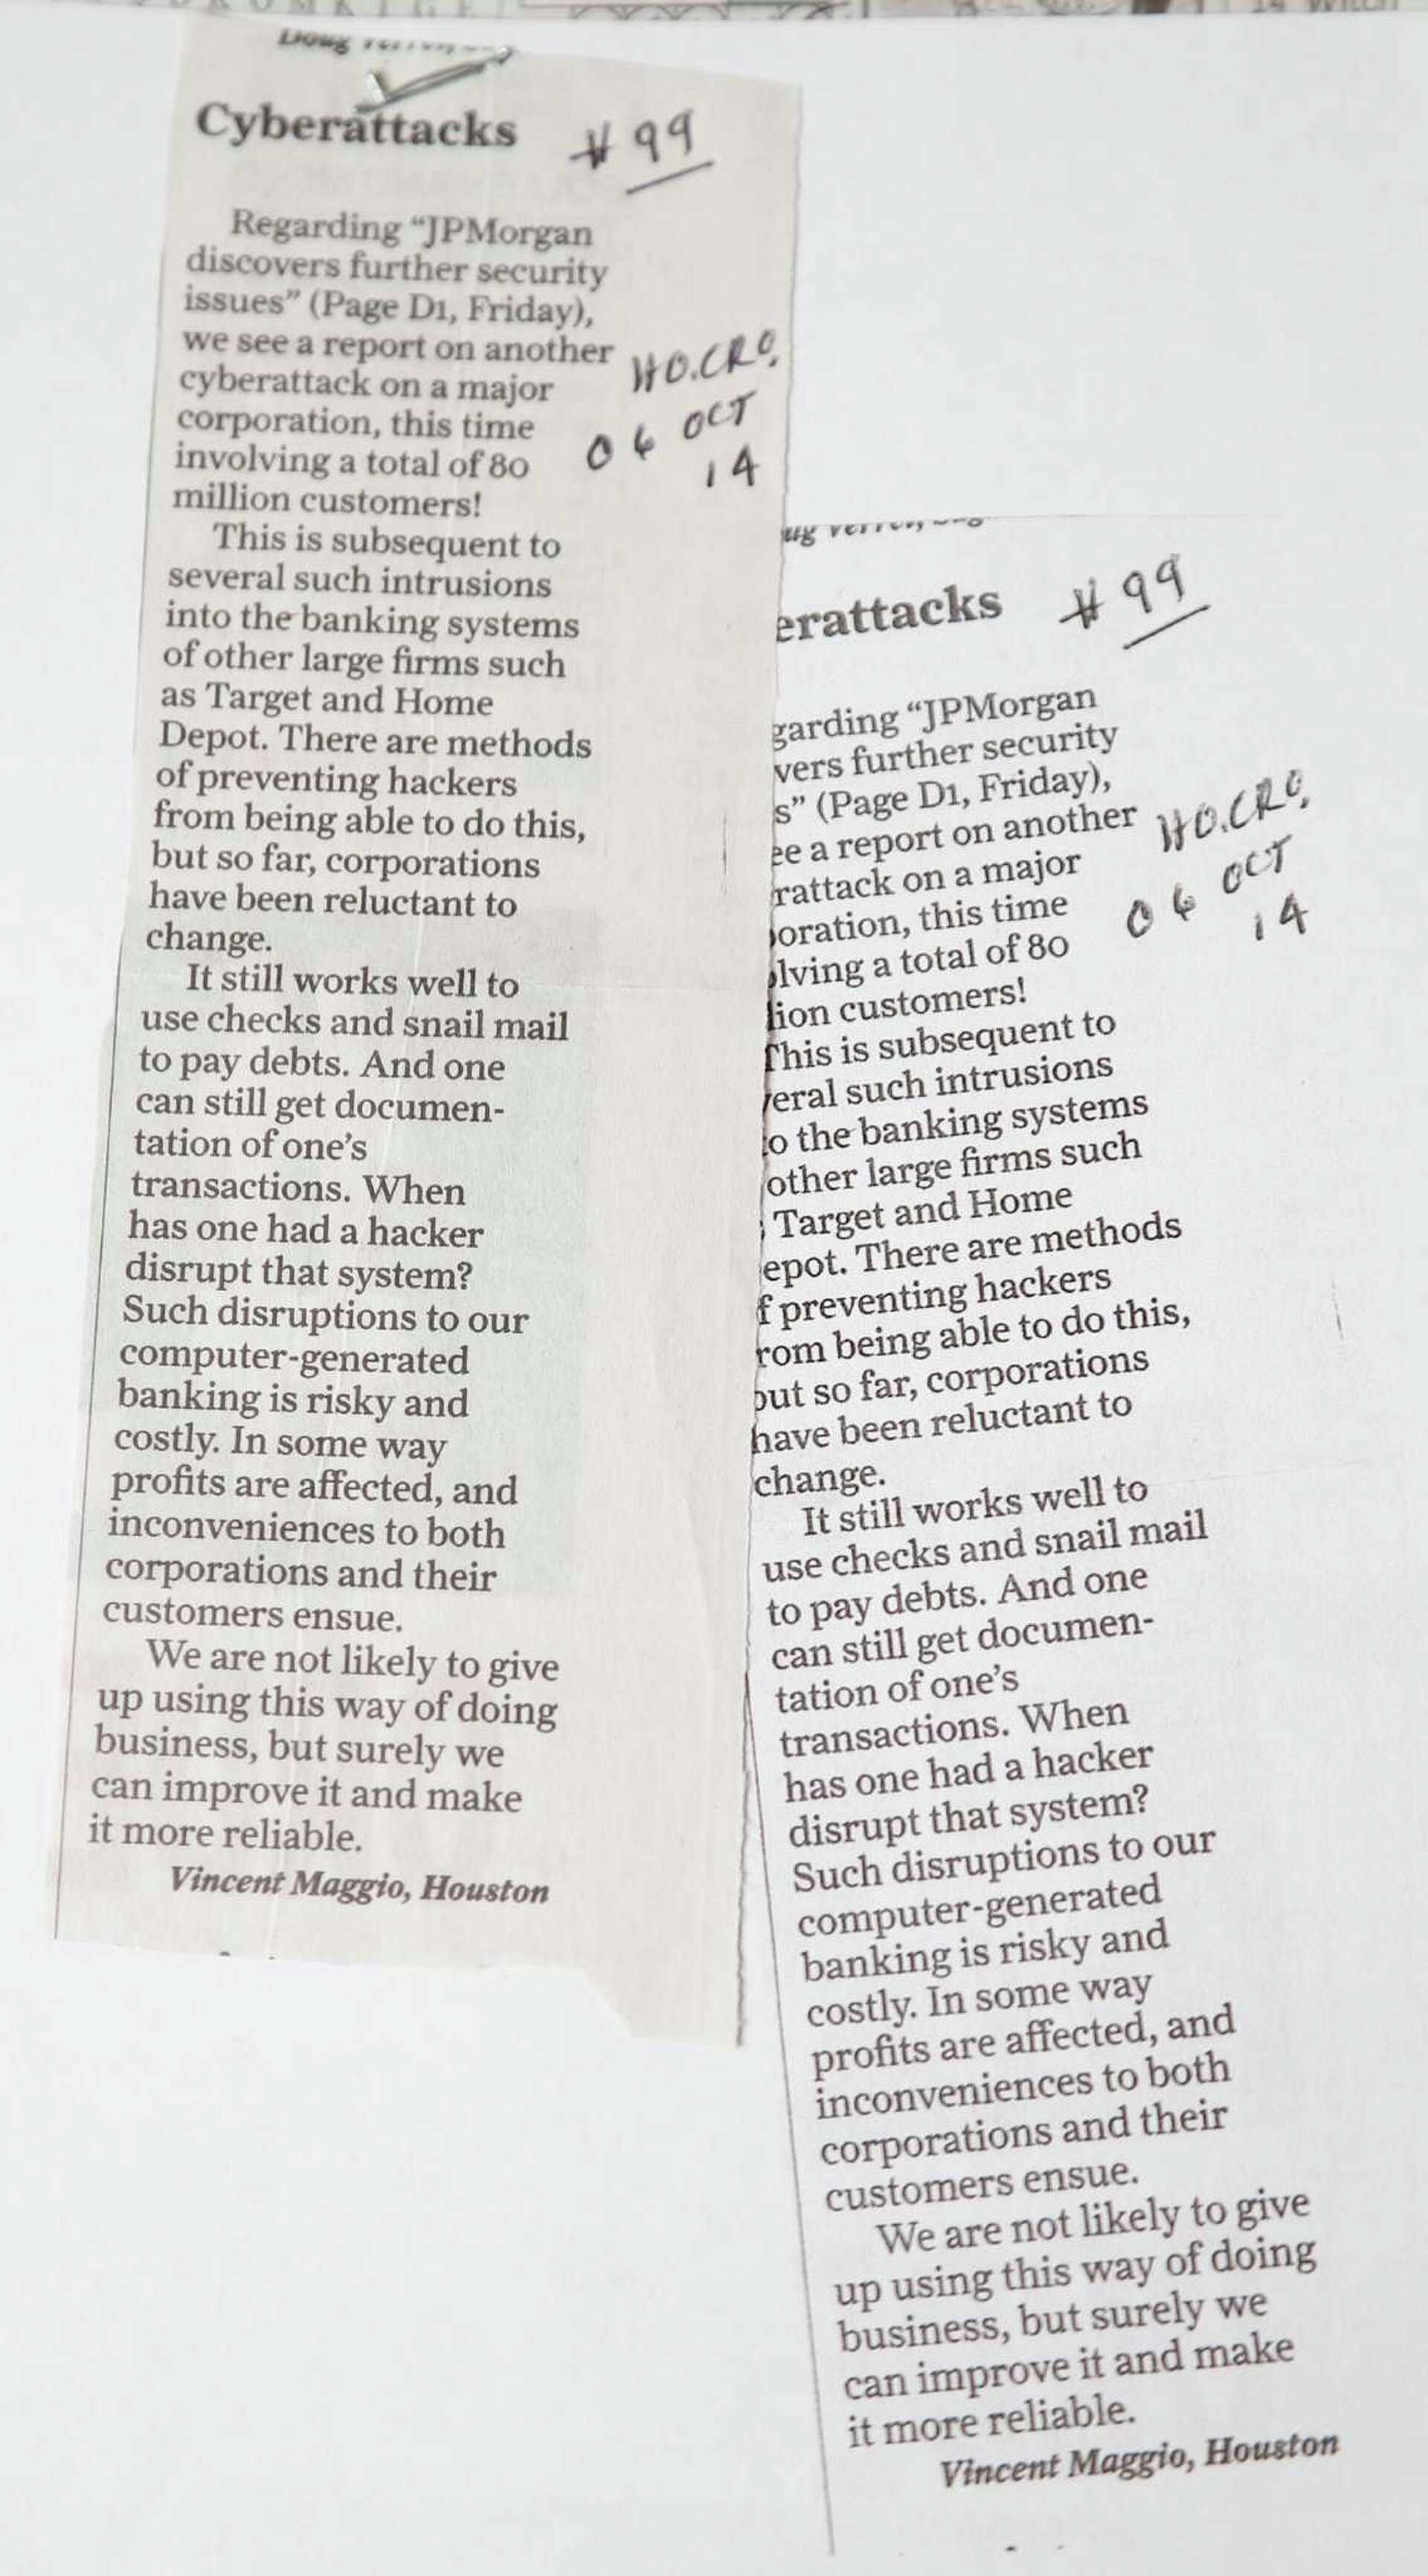 Cyberattacks
# 99
Regarding “JPMorgan
discovers further security
issues” (Page D1, Friday),
we see a report on another
cyberattack on a major
corporation, this time
involving a total of 80
million customers!
HO.CRO.
06 OCT
14
This is subsequent to
several such intrusions
into the banking systems
of other large firms such
as Target and Home
Depot. There are methods
of preventing hackers
from being able to do this,
but so far, corporations
have been reluctant to
change.
It still works well to
use checks and snail mail
to pay debts. And one
can still get documen-
tation of one’s
transactions. When
has one had a hacker
disrupt that system?
Such disruptions to our
computer-generated
banking is risky and
costly. In some way
profits are affected, and
inconveniences to both
corporations and their
customers ensue.
We are not likely to give
up using this way of doing
business, but surely we
can improve it and make
it more reliable.
Vincent Maggio, Houston
erattacks
# 99
garding “JPMorgan
vers further security
s” (Page D1, Friday),
ee a report on another
rattack on a major
oration, this time
lving a total of 80
lion customers!
HO.CRO.
06 OCT
14
This is subsequent to
veral such intrusions
to the banking systems
other large firms such
Target and Home
epot. There are methods
f preventing hackers
rom being able to do this,
but so far, corporations
have been reluctant to
change.
It still works well to
use checks and snail mail
to pay debts. And one
can still get documen-
tation of one’s
transactions. When
has one had a hacker
disrupt that system?
Such disruptions to our
computer-generated
banking is risky and
costly. In some way
profits are affected, and
inconveniences to both
corporations and their
customers ensue.
We are not likely to give
up using this way of doing
business, but surely we
can improve it and make
it more reliable.
Vincent Maggio, Houston